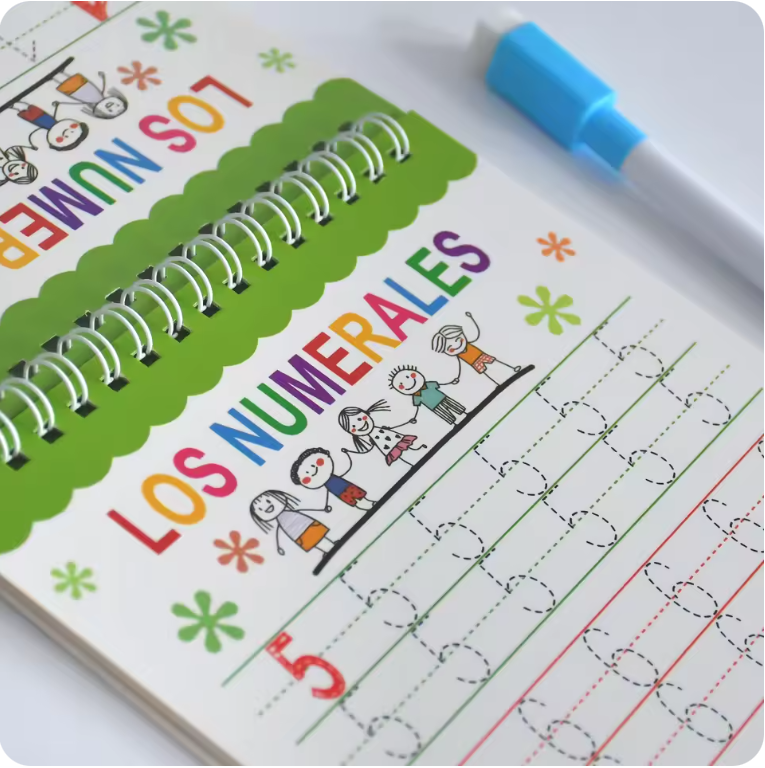 LOS NUMER
LOS NUMERALES
5